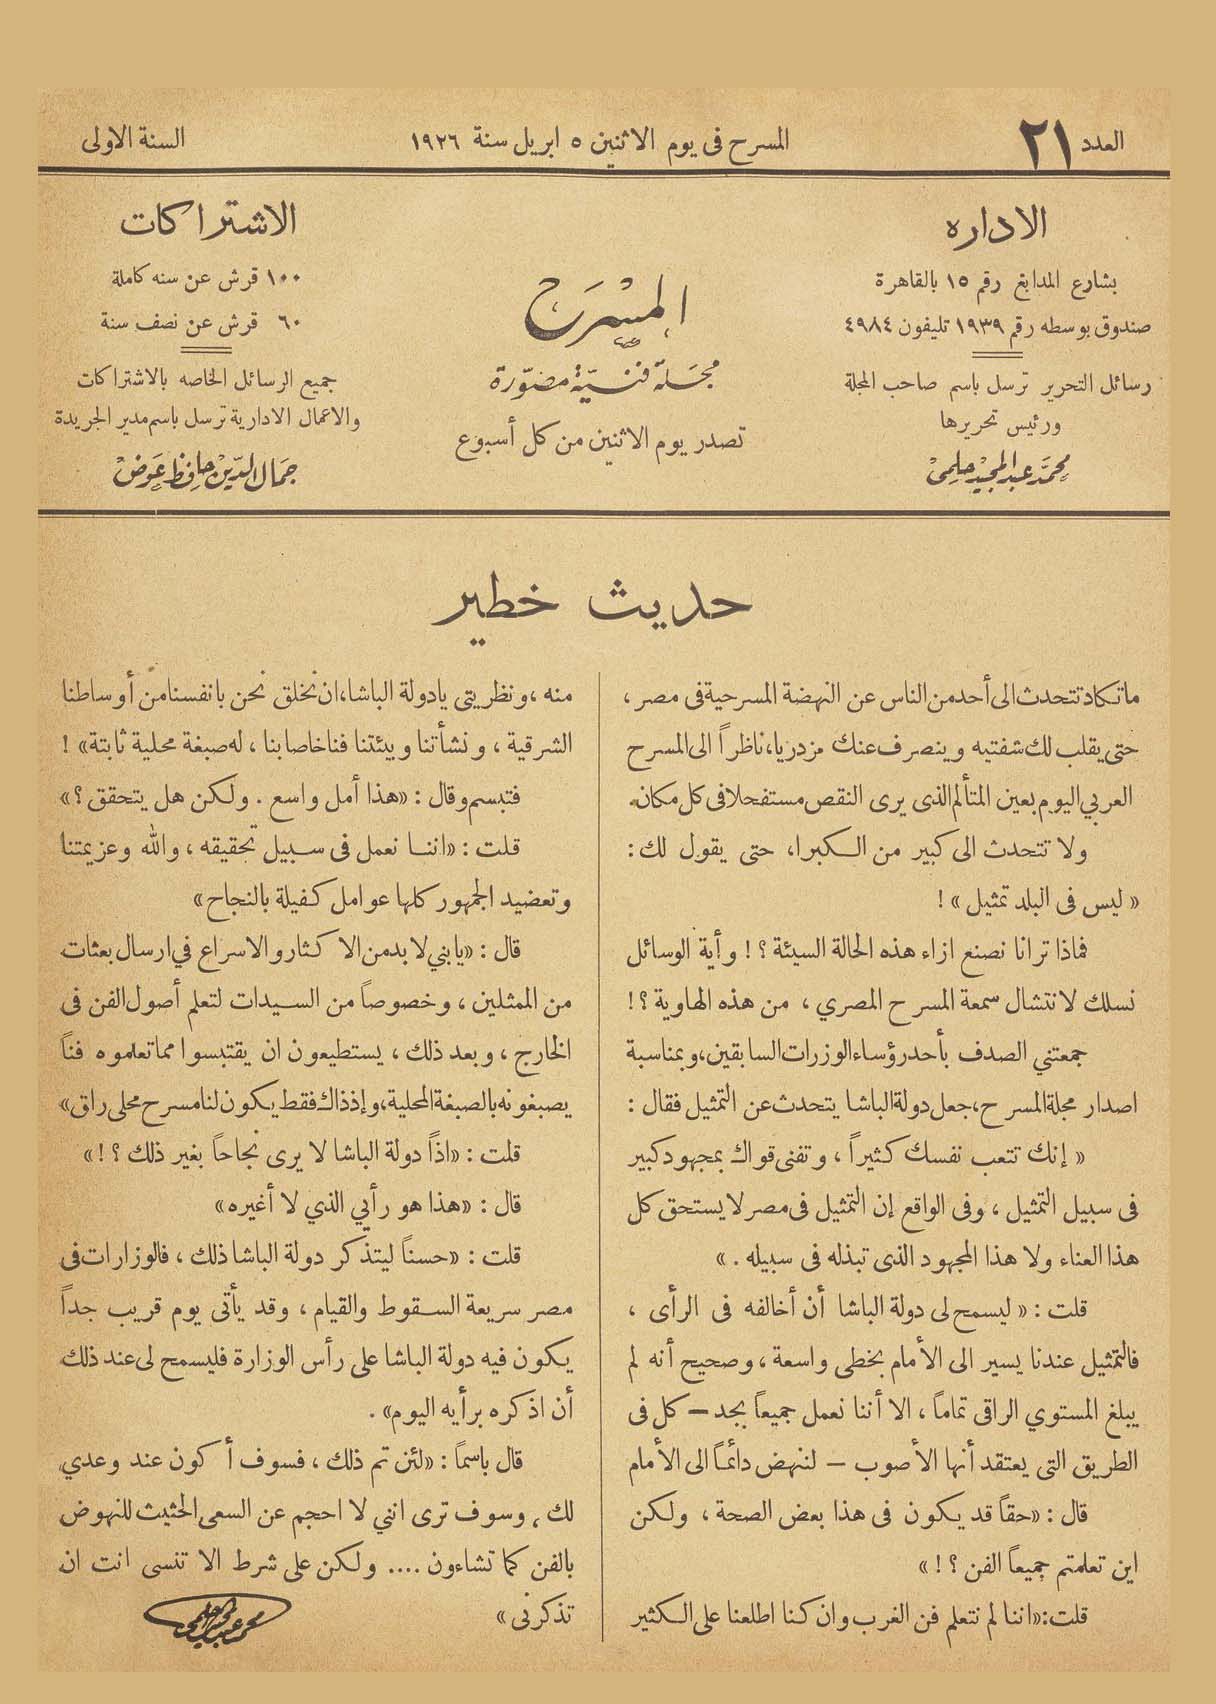 العدد ٢١
المسرح فى يوم الاثنين ٥ ابريل سنة ١٩٢٦
السنة الاولى
الاداره
بشارع المدابغ رقم ١٥ بالقاهرة
صندوق بوسطه رقم ١٩٣٩ تليفون ٤٩٨٤
رسائل التحرير ترسل باسم صاحب المجلة
ورئيس تحريرها
محمد عبد المجيد حلمى
المسرح
مجلة فنية مصورة
تصدر يوم الاثنين من كل أسبوع
الاشتراكات
١٠٠ قرش عن سنه كاملة
٦٠ قرش عن نصف سنة
جميع الرسائل الخاصه بالاشتراكات
والاعمال الادارية ترسل باسم مدير الجريدة
جمال الدين حافظ عوض
حديث خطير
ما تكاد تتحدث الى أحد من الناس عن النهضة المسرحية فى مصر ،
حتى يقلب لك شفتيه وينصرف عنك مزدريا، ناظراً الى المسرح
العربي اليوم بعين المتألم الذى يرى النقص مستفحلا فى كل مكان.
ولا تتحدث الى كبير من الكبرا، حتى يقول لك :
« ليس فى البلد تمثيل » !
فماذا ترانا نصنع ازاء هذه الحالة السيئة ؟ ! وأية الوسائل
نسلك لانتشال سمعة المسرح المصري ، من هذه الهاوية ؟ !
جمعتني الصدف بأحد رؤساء الوزرات السابقين، وبمناسبة
اصدار مجلة المسرح، جعل دولة الباشا يتحدث عن التمثيل فقال :
« إنك تتعب نفسك كثيراً ، وتفنى قواك بمجهود كبير
فى سبيل التمثيل ، وفى الواقع إن التمثيل فى مصر لا يستحق كل
هذا العناء ولا هذا المجهود الذى تبذله فى سبيله . »
قلت : « ليسمح لى دولة الباشا أن أخالفه فى الرأى ،
فالتمثيل عندنا يسير الى الأمام بخطى واسعة ، وصحيح أنه لم
يبلغ المستوي الراقى تماماً ، الا أننا نعمل جميعاً بجد — كل فى
الطريق التى يعتقد أنها الأصوب — لننهض دائماً الى الأمام
قال : «حقاً قد يكون فى هذا بعض الصحة ، ولكن
اين تعلمتم جميعاً الفن ؟ ! »
قلت: «اننا لم نتعلم فن الغرب وان كنا اطلعنا على الكثير
منه ، ونظريتى يا دولة الباشا، ان نخلق نحن بانفسنا من أوساطنا
الشرقية ، ونشأتنا وبيئتنا فنا خاصا بنا ، له صبغة محلية ثابتة» !
فتبسم وقال : «هذا أمل واسع . ولكن هل يتحقق ؟»
قلت : «اننا نعمل فى سبيل تحقيقه ، والله وعزيمتنا
وتعضيد الجمهور كلها عوامل كفيلة بالنجاح»
قال : «يا بني لا بد من الاكثار والاسراع في ارسال بعثات
من الممثلين ، وخصوصاً من السيدات لتعلم أصول الفن فى
الخارج ، وبعد ذلك ، يستطيعون ان يقتبسوا مما تعلموه فناً
يصبغونه بالصبغة المحلية، وإذ ذاك فقط يكون لنا مسرح محلى راق»
قلت : «اذاً دولة الباشا لا يرى نجاحاً بغير ذلك ؟ !»
قال : «هذا هو رأيي الذي لا أغيره»
قلت : «حسناً ليتذكر دولة الباشا ذلك ، فالوزارات فى
مصر سريعة السقوط والقيام ، وقد يأتى يوم قريب جداً
يكون فيه دولة الباشا على رأس الوزارة فليسمح لى عند ذلك
أن اذكره برأيه اليوم» .
قال باسماً : «لئن تم ذلك ، فسوف أكون عند وعدي
لك ، وسوف ترى انني لا احجم عن السعى الحثيث للنهوض
بالفن كما تشاءون .... ولكن على شرط الا تنسى انت ان
تذكرنى »
محمد عبد المجيد حلمى